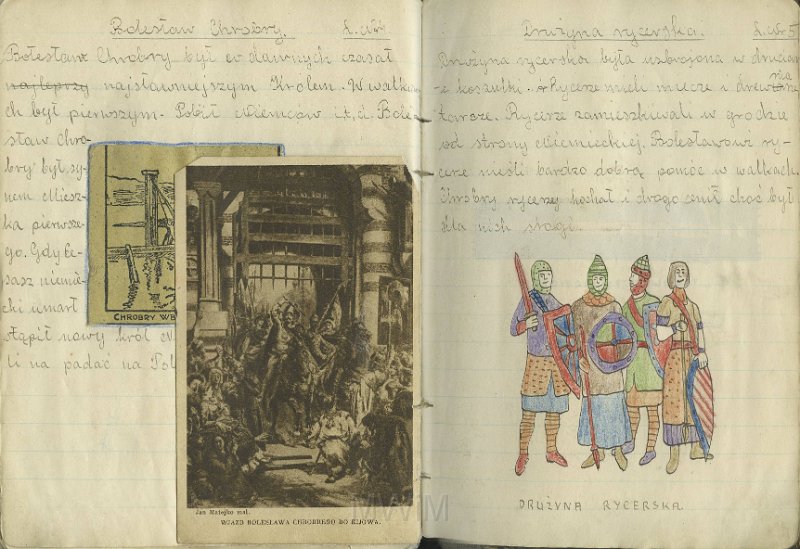 Bolesław Chrobry.
Bolesław Chrobry był w dawnych czasach
najlepszy najsławniejszym Królem. W walkach
był pierwszym. Pobił Niemców i t.d. Bole-
sław Chro-
bry był sy-
nem Miesz-
ka pierwsze-
go. Gdy Ce-
sarz niemie-
cki umarł
stąpił nowy król
li na padać na Pol
CHROBRY WB
Jan Matejko mal.
WJAZD BOLESŁAWA CHROBREGO DO KIJOWA.
Drużyna rycerska.
Drużyna rycerska była uzbrojona w drucian
e koszulki. Rycerze mieli miecze i drewnia
tarcze. Rycerze zamieszkiwali w grodzie
od strony niemieckiej. Bolesławowi ry-
cerze nieśli bardzo dobrą pomóc w walkach.
Chrobry rycerzy kochał i drogo cenił choć był
dla nich srogi.
DRUŻYNA RYCERSKA
MWM